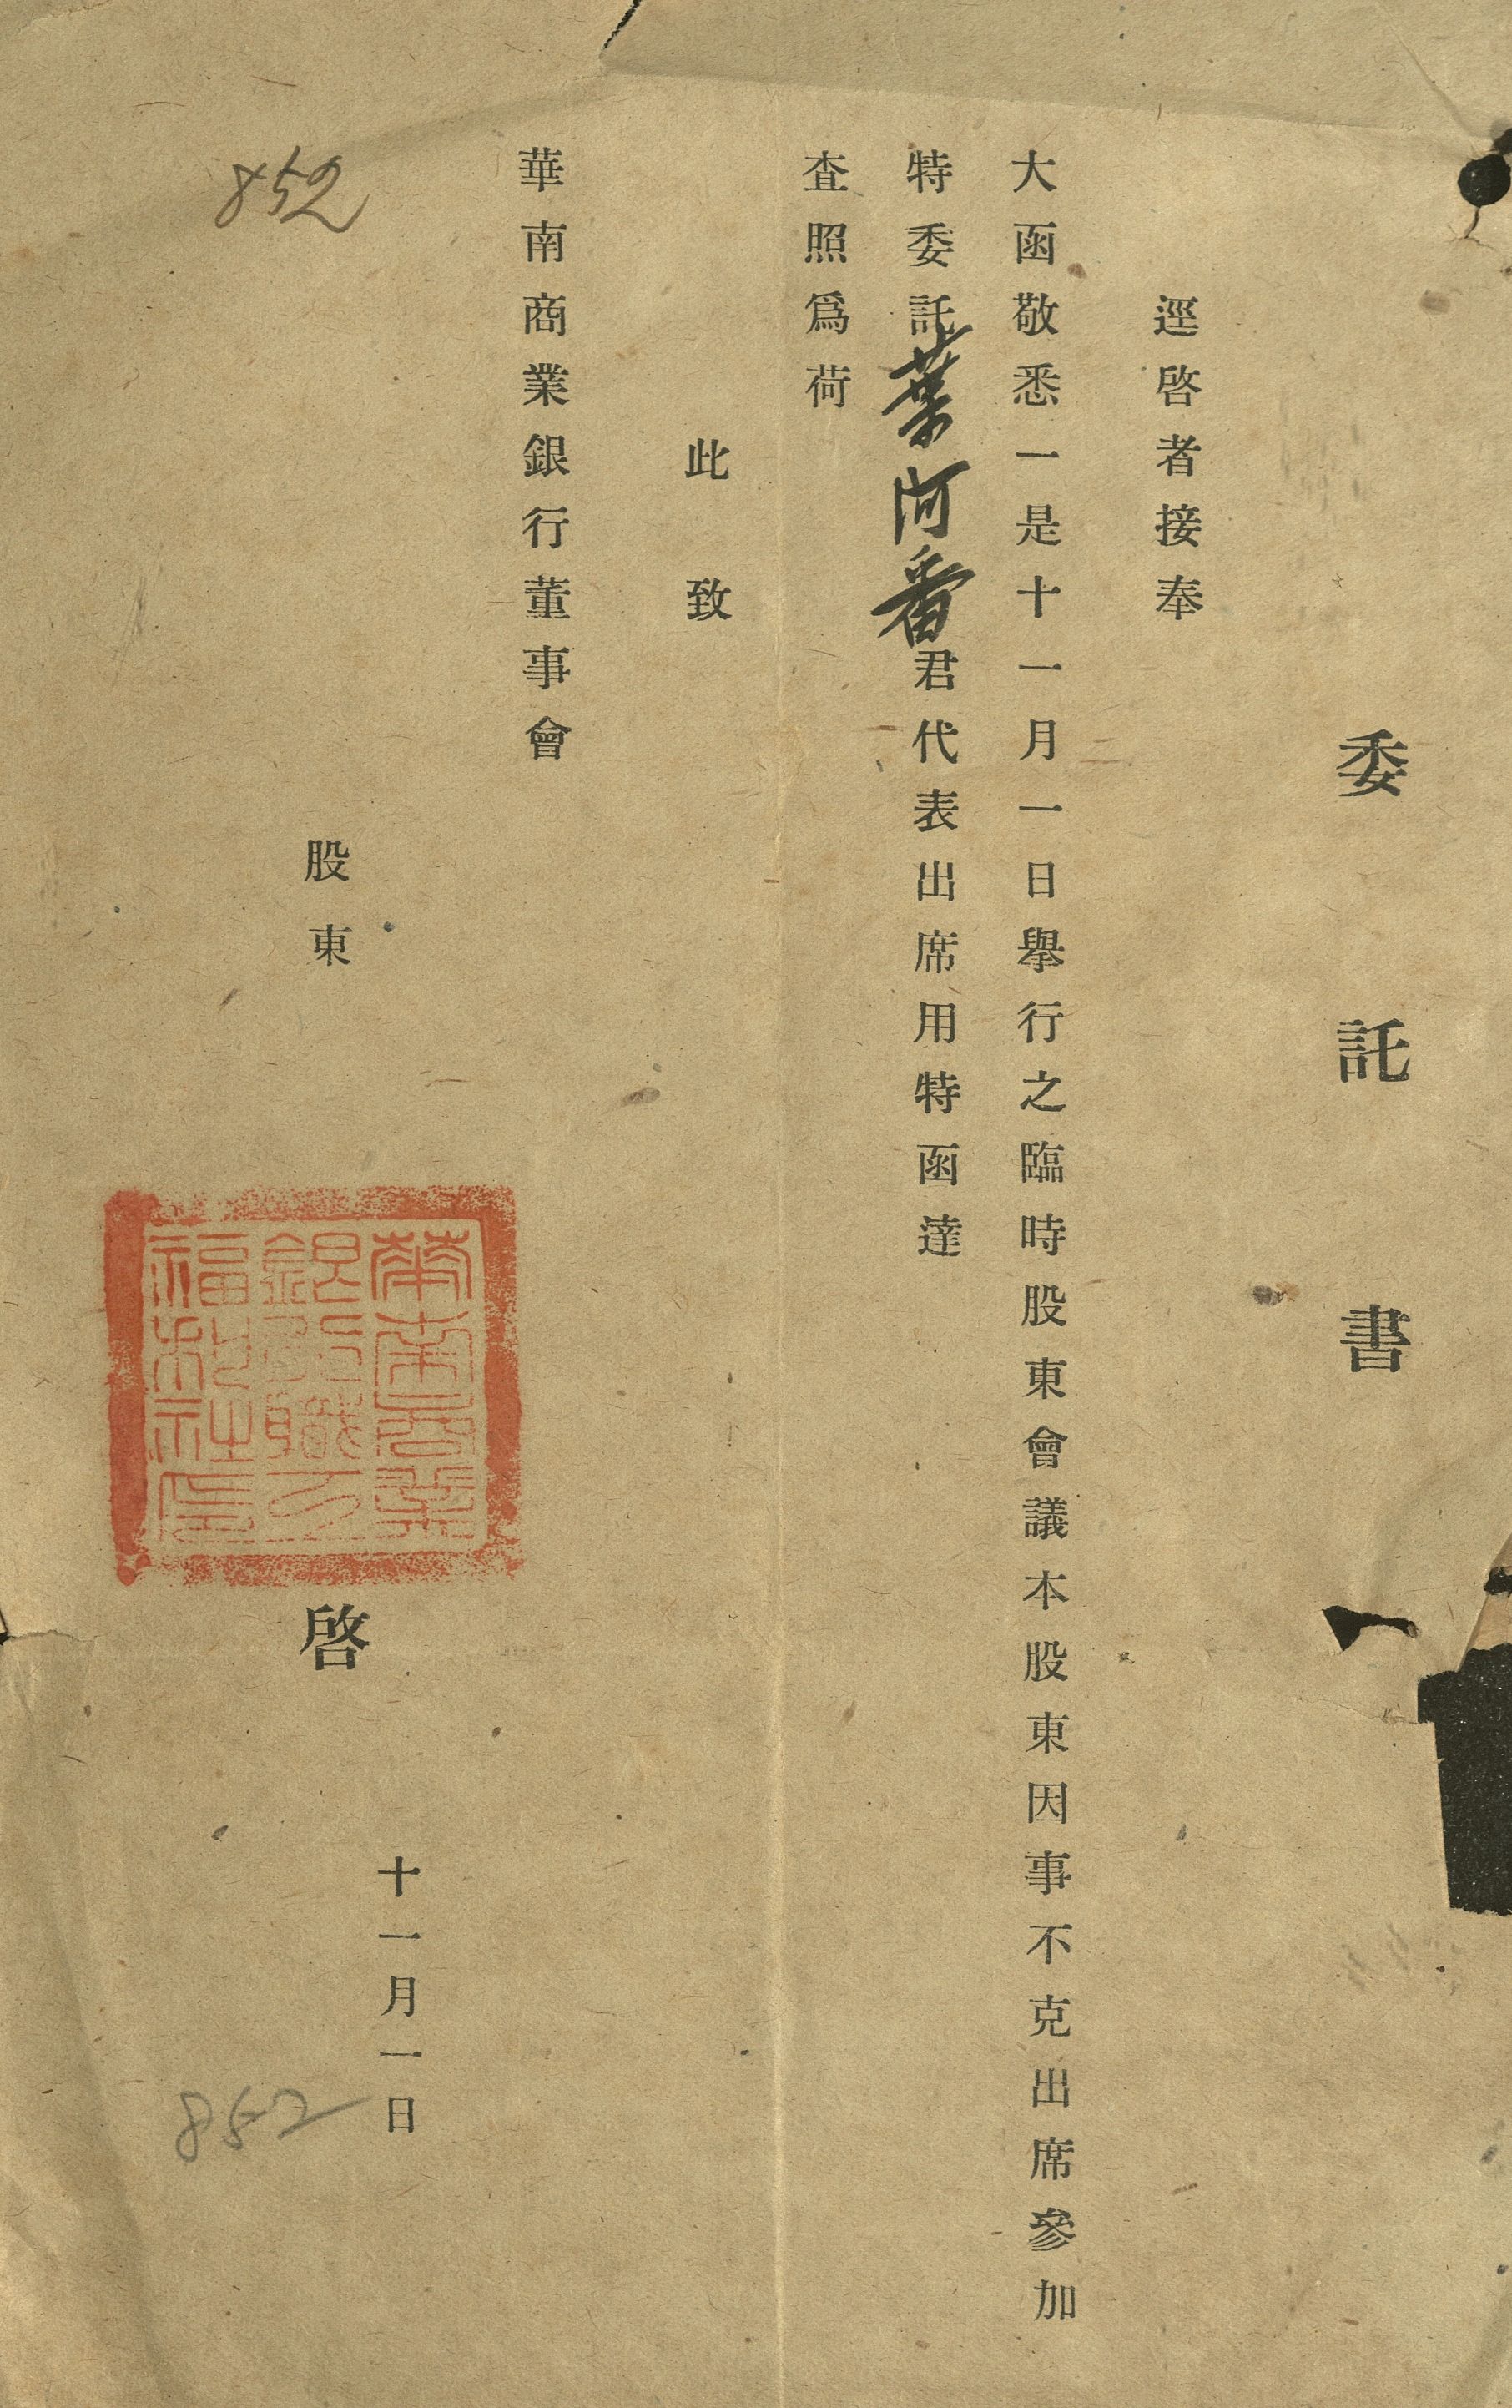 委託書
逕啓者接奉
大函敬悉一是十一月一日舉行之臨時股東會議本股東因事不克出席參加
特委託葉阿番君代表出席用特函達
査照爲荷
此致
華南商業銀行董事會
股東
華南商業
銀行職工
福利社印
啓
十一月一日
852
852